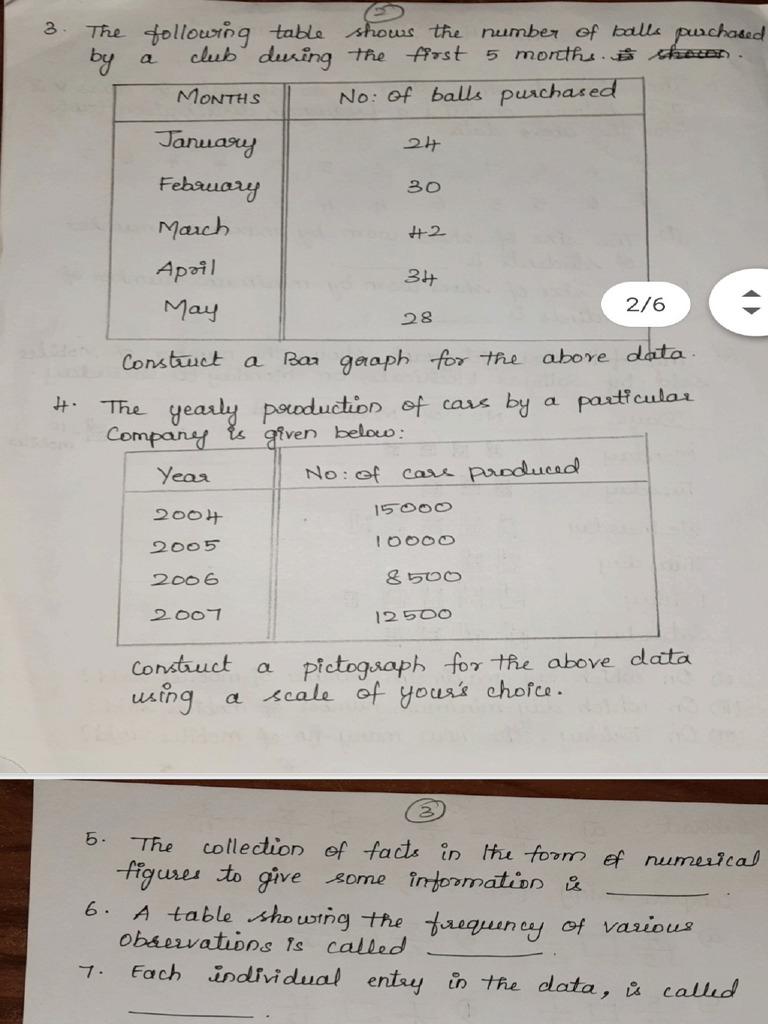 2
3. The following table shows the number of balls purchased
by a club during the first 5 months. is shown.
MONTHS No: of balls purchased
January 24
February 30
March 42
April 34
May 28
2/6
Construct a Bar graph for the above data.
4. The yearly production of cars by a particular
Company is given below:
Year No: of cars produced
2004 15000
2005 10000
2006 8500
2007 12500
Construct a pictograph for the above data
using a scale of your's choice.
3
5. The collection of facts in the form of numerical
figures to give some information is ________.
6. A table showing the frequency of various
observations is called ________.
7. Each individual entry in the data, is called
________.